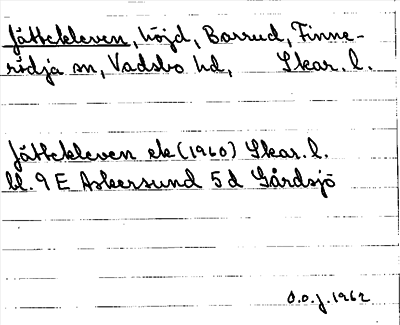 Jättekleven, höjd, Barrud, Finne-
rödja sn, Vadsbo hd, Skar. l.
Jättekleven ek (1960) Skar. l.
bl. 9 E Askersund 5 d Gårdsjö
O.o.j. 1962